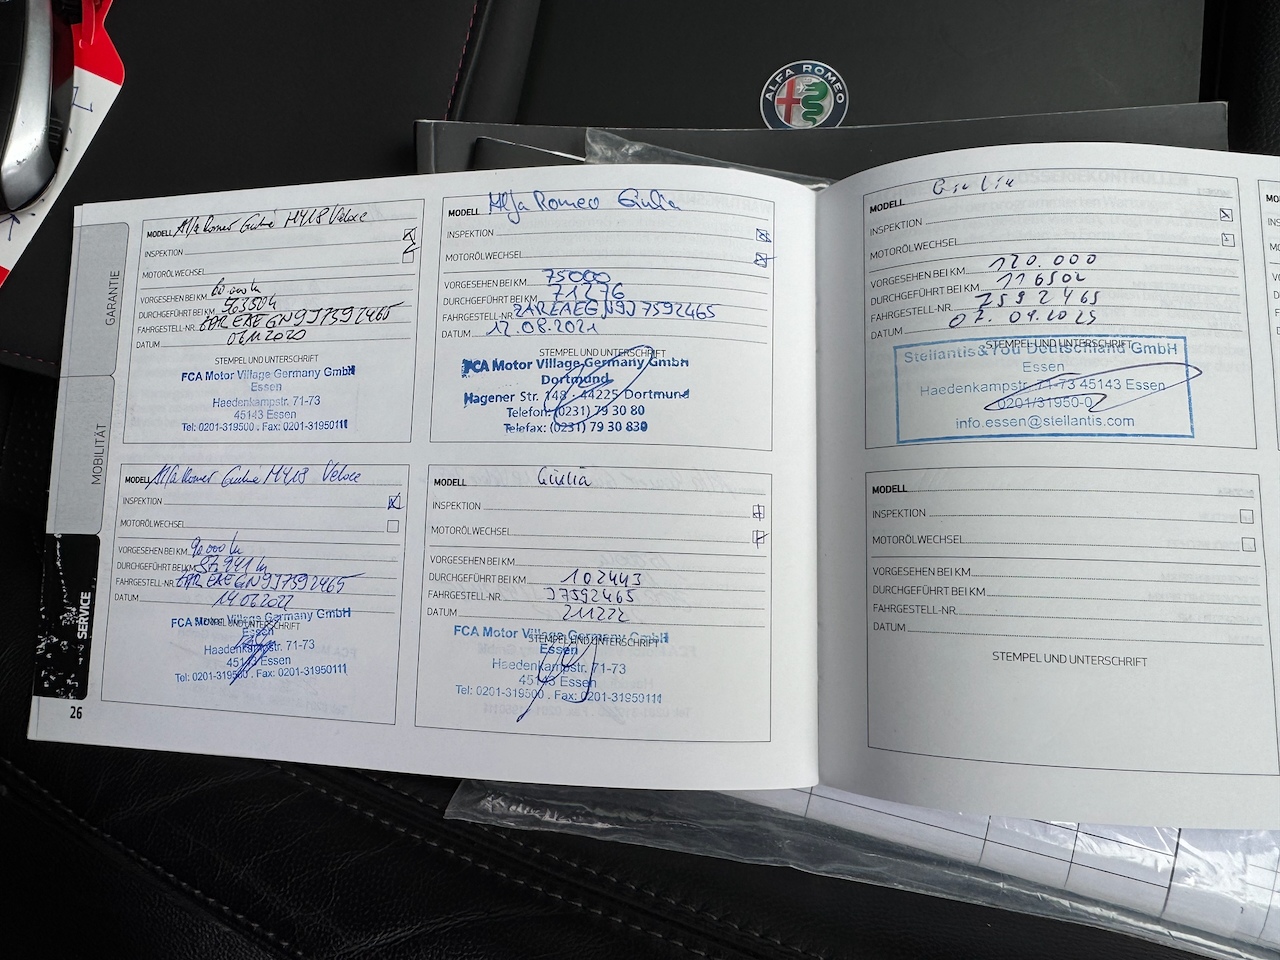 ALFA ROMEO
GARANTIE
MOBILITÄT
SERVICE
26
MODELL Alfa Romeo Giulia MY18 Veloce
INSPEKTION
MOTORÖLWECHSEL
VORGESEHEN BEI KM 60.000 km
DURCHGEFÜHRT BEI KM
FAHRGESTELL-NR. ZAREAEGN9J7592465
DATUM
STEMPEL UND UNTERSCHRIFT
FCA Motor Village Germany GmbH
Essen
Haedenkampstr. 71-73
45143 Essen
Tel: 0201-319500 . Fax: 0201-31950111
MODELL Alfa Romeo Giulia MY18 Veloce
INSPEKTION
MOTORÖLWECHSEL
VORGESEHEN BEI KM 90.000 km
DURCHGEFÜHRT BEI KM 87941 km
FAHRGESTELL-NR. ZAREAEGN9J7592465
DATUM
STEMPEL UND UNTERSCHRIFT
FCA Motor Village Germany GmbH
Essen
Haedenkampstr. 71-73
45143 Essen
Tel: 0201-319500 . Fax: 0201-31950111
MODELL Alfa Romeo Giulia
INSPEKTION
MOTORÖLWECHSEL
VORGESEHEN BEI KM 75000
DURCHGEFÜHRT BEI KM 71276
FAHRGESTELL-NR. ZAREAEGN9J7592465
DATUM 12.08.2021
STEMPEL UND UNTERSCHRIFT
FCA Motor Village Germany GmbH
Dortmund
Hagener Str. 148 · 44225 Dortmund
Telefon: (0231) 79 30 80
Telefax: (0231) 79 30 830
MODELL Giulia
INSPEKTION
MOTORÖLWECHSEL
VORGESEHEN BEI KM
DURCHGEFÜHRT BEI KM 102443
FAHRGESTELL-NR. J7592465
DATUM 211222
STEMPEL UND UNTERSCHRIFT
FCA Motor Village Germany GmbH
Essen
Haedenkampstr. 71-73
45143 Essen
Tel: 0201-319500 . Fax: 0201-31950111
MODELL Giulia
INSPEKTION
MOTORÖLWECHSEL
VORGESEHEN BEI KM 120.000
DURCHGEFÜHRT BEI KM 116502
FAHRGESTELL-NR. 7592465
DATUM
STEMPEL UND UNTERSCHRIFT
Stellantis&You Deutschland GmbH
Essen
Haedenkampstr. 71-73 45143 Essen
0201/31950-0
info.essen@stellantis.com
MODELL
INSPEKTION
MOTORÖLWECHSEL
VORGESEHEN BEI KM
DURCHGEFÜHRT BEI KM
FAHRGESTELL-NR.
DATUM
STEMPEL UND UNTERSCHRIFT